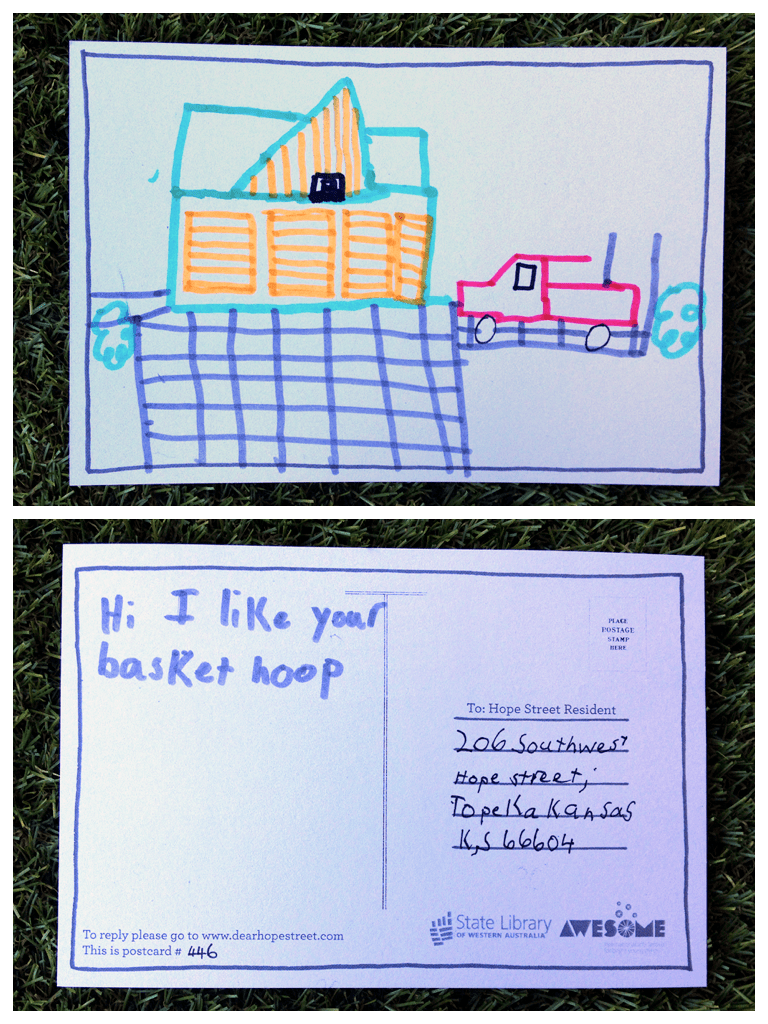 Hi I like your
basket hoop
PLACE
POSTAGE
STAMP
HERE
To: Hope Street Resident
206 Southwest
Hope street,
Topeka Kansas
K,S 66604
To reply please go to www.dearhopestreet.com
This is postcard # 446
State Library
OF WESTERN AUSTRALIA
AWESOME